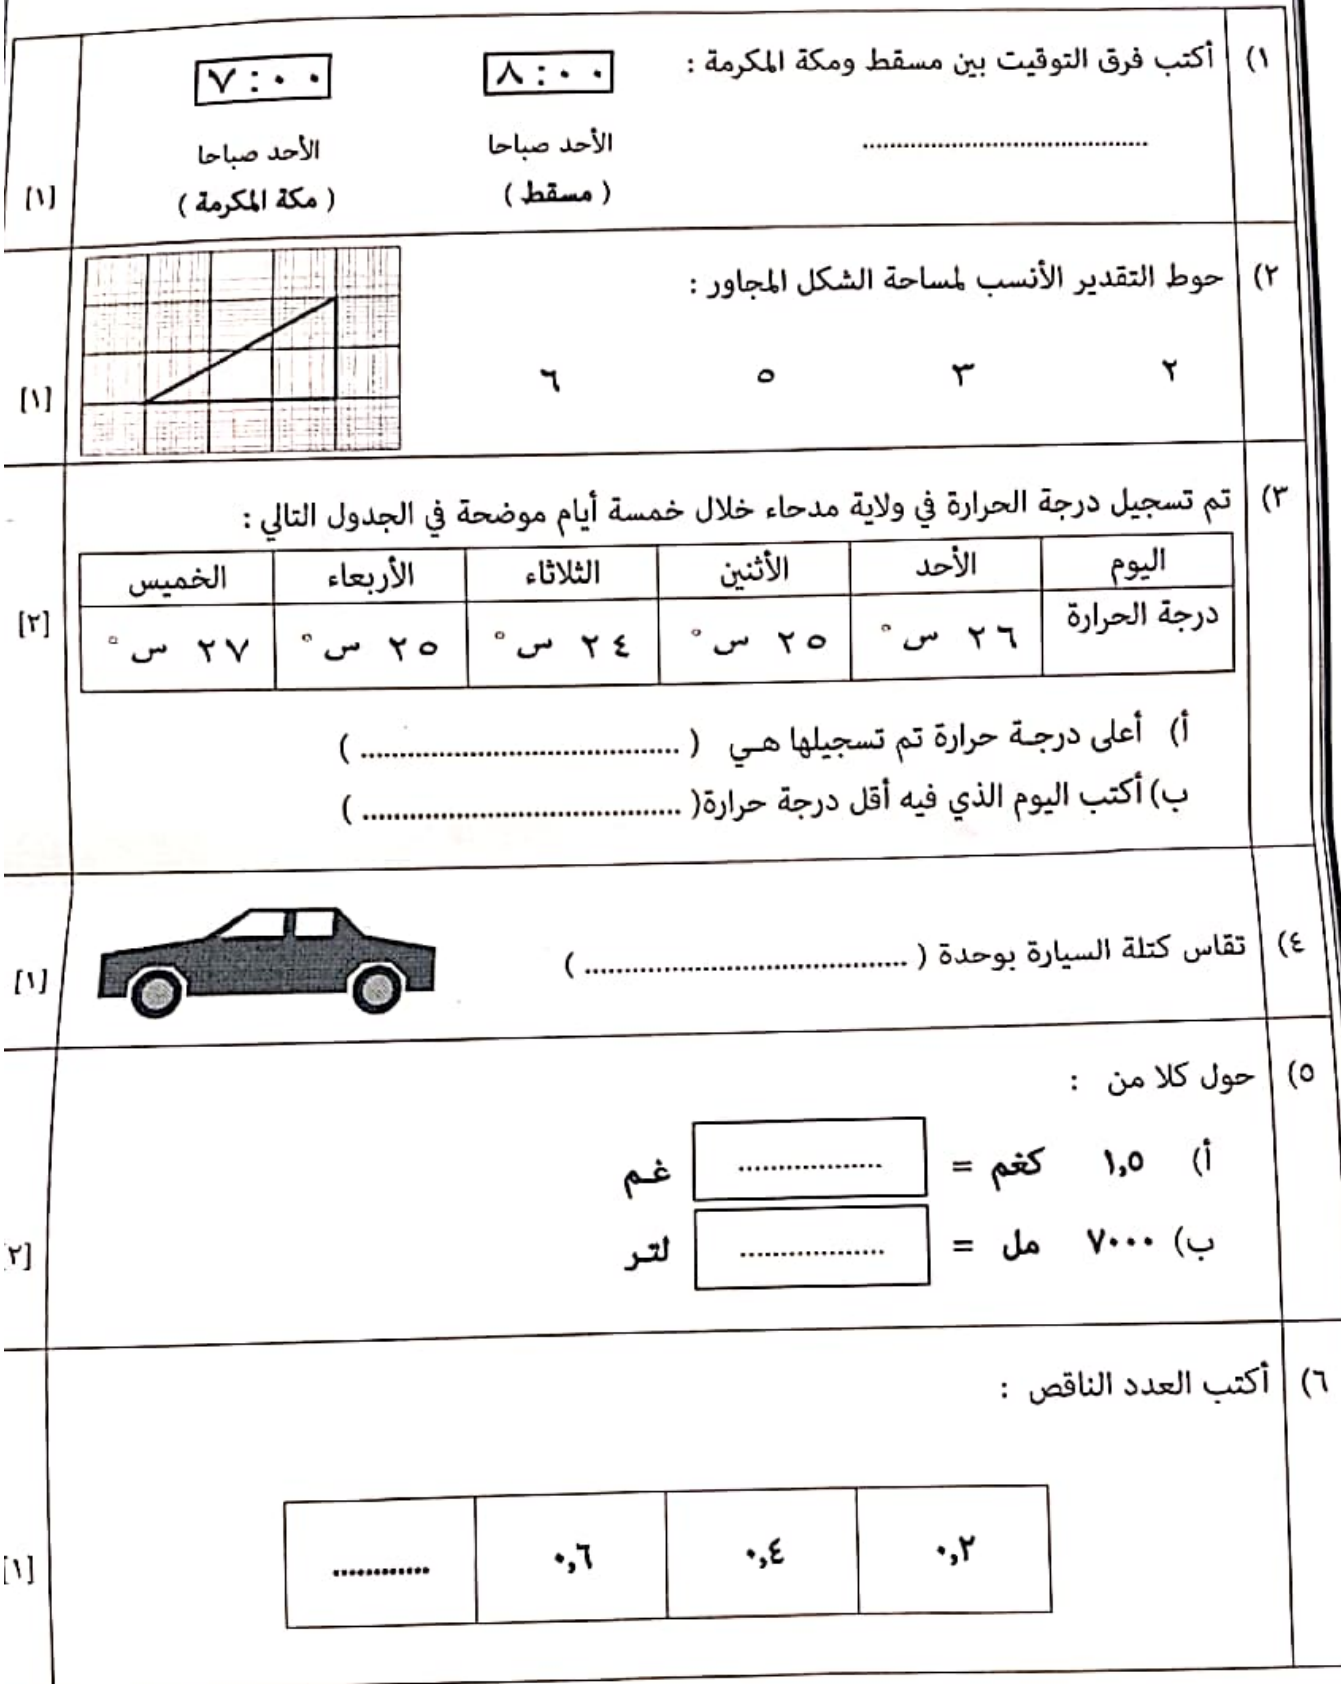 ١) أكتب فرق التوقيت بين مسقط ومكة المكرمة :
٨:٠٠ ٧:٠٠
الأحد صباحا الأحد صباحا
( مسقط ) ( مكة المكرمة )
........................................
[١]
٢) حوط التقدير الأنسب لمساحة الشكل المجاور :
٢ ٣ ٥ ٦
[١]
٣) تم تسجيل درجة الحرارة في ولاية مدحاء خلال خمسة أيام موضحة في الجدول التالي :
اليوم الأحد الأثنين الثلاثاء الأربعاء الخميس
درجة الحرارة ٢٦ س° ٢٥ س° ٢٤ س° ٢٥ س° ٢٧ س°
[٢]
أ) أعلى درجة حرارة تم تسجيلها هي ( ........................................ )
ب) أكتب اليوم الذي فيه أقل درجة حرارة( ........................................ )
٤) تقاس كتلة السيارة بوحدة ( ........................................ )
[١]
٥) حول كلا من :
أ) ١,٥ كغم = .................. غم
ب) ٧٠٠٠ مل = .................. لتر
[٢]
٦) أكتب العدد الناقص :
٠,٢ ٠,٤ ٠,٦ ............
[١]